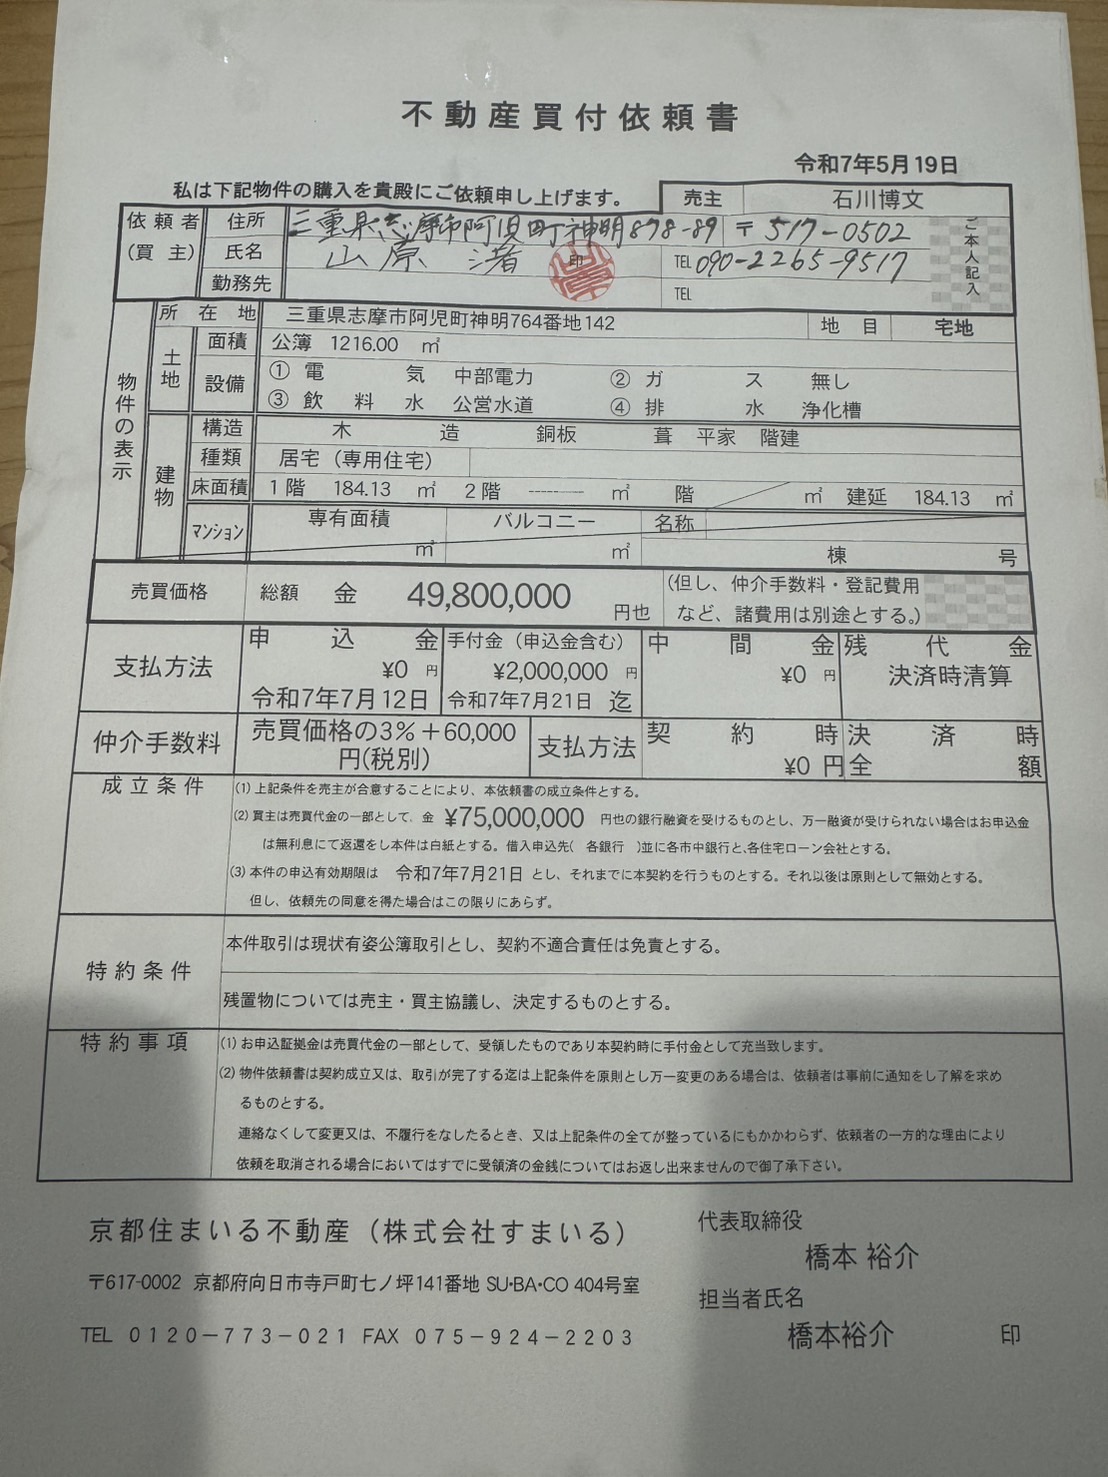 不動産買付依頼書
令和7年5月19日
私は下記物件の購入を貴殿にご依頼申し上げます。
売主 石川博文
依頼者(買主) 住所 三重県志摩市阿児町神明878-89 〒517-0502
氏名 山原 渚 印 TEL 090-2265-9517
勤務先 TEL
ご本人記入
物件の表示
土地 所在地 三重県志摩市阿児町神明764番地142 地目 宅地
面積 公簿 1216.00 ㎡
設備 ① 電気 中部電力 ② ガス 無し
③ 飲料水 公営水道 ④ 排水 浄化槽
建物 構造 木造 銅板 葺 平家 階建
種類 居宅(専用住宅)
床面積 1階 184.13 ㎡ 2階 -------- ㎡ 階 ㎡ 建延 184.13 ㎡
マンション 専有面積 ㎡ バルコニー ㎡ 名称 棟 号
売買価格 総額 金 49,800,000 円也 (但し、仲介手数料・登記費用
など、諸費用は別途とする。)
支払方法 申込金 手付金(申込金含む) 中間金 残代金
¥0 円 ¥2,000,000 円 ¥0 円 決済時清算
令和7年7月12日 令和7年7月21日 迄
仲介手数料 売買価格の3%+60,000 支払方法 契約時 決済時
円(税別) ¥0 円 全額
成立条件 (1) 上記条件を売主が合意することにより、本依頼書の成立条件とする。
(2) 買主は売買代金の一部として、金 ¥75,000,000 円也の銀行融資を受けるものとし、万一融資が受けられない場合はお申込金
は無利息にて返還をし本件は白紙とする。借入申込先( 各銀行 )並に各市中銀行と、各住宅ローン会社とする。
(3) 本件の申込有効期限は 令和7年7月21日 とし、それまでに本契約を行うものとする。それ以後は原則として無効とする。
但し、依頼先の同意を得た場合はこの限りにあらず。
特約条件 本件取引は現状有姿公簿取引とし、契約不適合責任は免責とする。
残置物については売主・買主協議し、決定するものとする。
特約事項 (1) お申込証拠金は売買代金の一部として、受領したものであり本契約時に手付金として充当致します。
(2) 物件依頼書は契約成立又は、取引が完了する迄は上記条件を原則とし万一変更のある場合は、依頼者は事前に通知をし了解を求め
るものとする。
連絡なくして変更又は、不履行をなしたるとき、又は上記条件の全てが整っているにもかかわらず、依頼者の一方的な理由により
依頼を取消される場合においてはすでに受領済の金銭についてはお返し出来ませんので御了承下さい。
京都住まいる不動産(株式会社すまいる)
〒617-0002 京都府向日市寺戸町七ノ坪141番地 SU・BA・CO 404号室
TEL 0120-773-021 FAX 075-924-2203
代表取締役
橋本 裕介
担当者氏名
橋本裕介 印